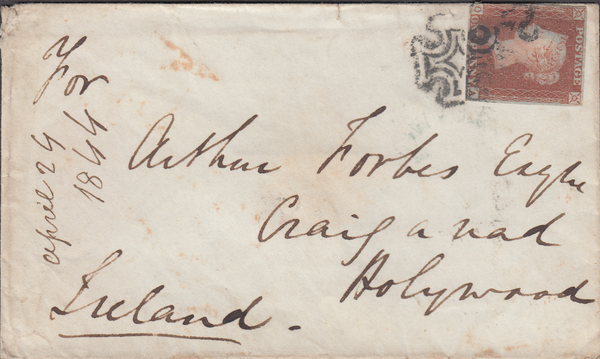 For
Arthur Forbes Esqre
Craig a vad
Holywood
Ireland.
april 24
1844
POSTAGE